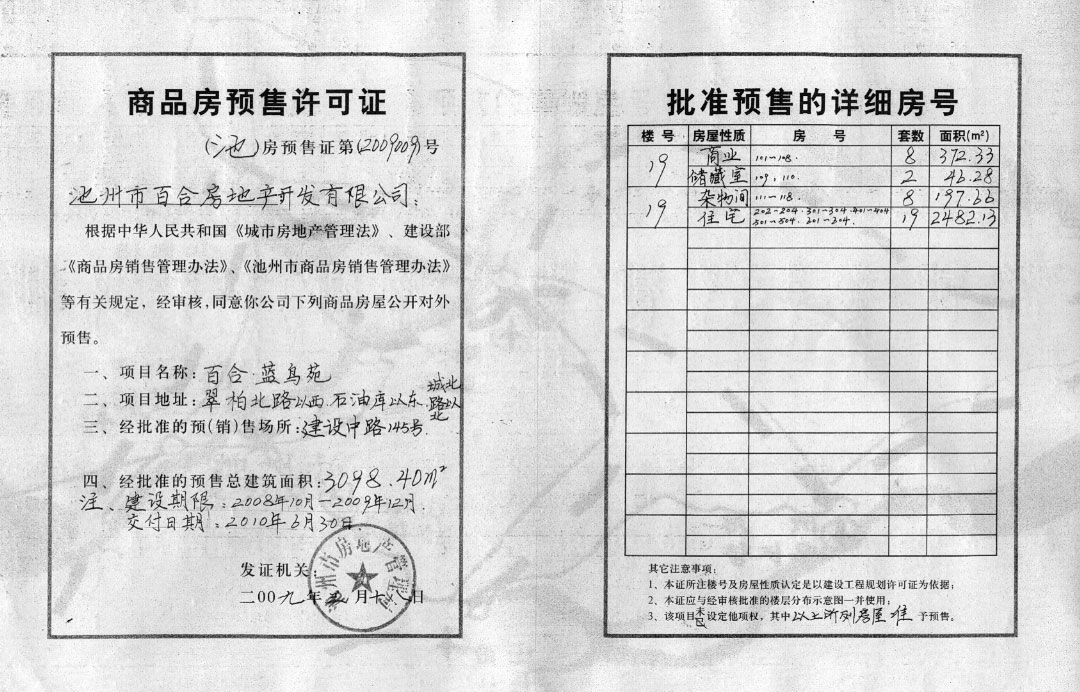 商品房预售许可证
(池)房预售证第(2009009)号
池州市百合房地产开发有限公司:
根据中华人民共和国《城市房地产管理法》、建设部
《商品房销售管理办法》、《池州市商品房销售管理办法》
等有关规定，经审核,同意你公司下列商品房屋公开对外
预售。
一、项目名称:百合·蓝鸟苑
二、项目地址:翠柏北路以西.石油库以东.城北路以北
三、经批准的预(销)售场所:建设中路145号.
四、经批准的预售总建筑面积:3098.40m²
注、建设期限:2008年10月—2009年12月.
交付日期:2010年6月30日.
发证机关:
池州市房地产管理局
二00九年五月十八日
批准预售的详细房号
楼号 房屋性质 房号 套数 面积(m²)
19 商业 101~108. 8 372.33
储藏室 109,110. 2 46.28
19 杂物间 111~118. 8 197.66
住宅 202~204.301~304.401~404 19 2482.13
501~504.
其它注意事项:
1、本证所注楼号及房屋性质认定是以建设工程规划许可证为依据;
2、本证应与经审核批准的楼层分布示意图一并使用;
3、该项目未设定他项权，其中以上所列房屋准予预售。